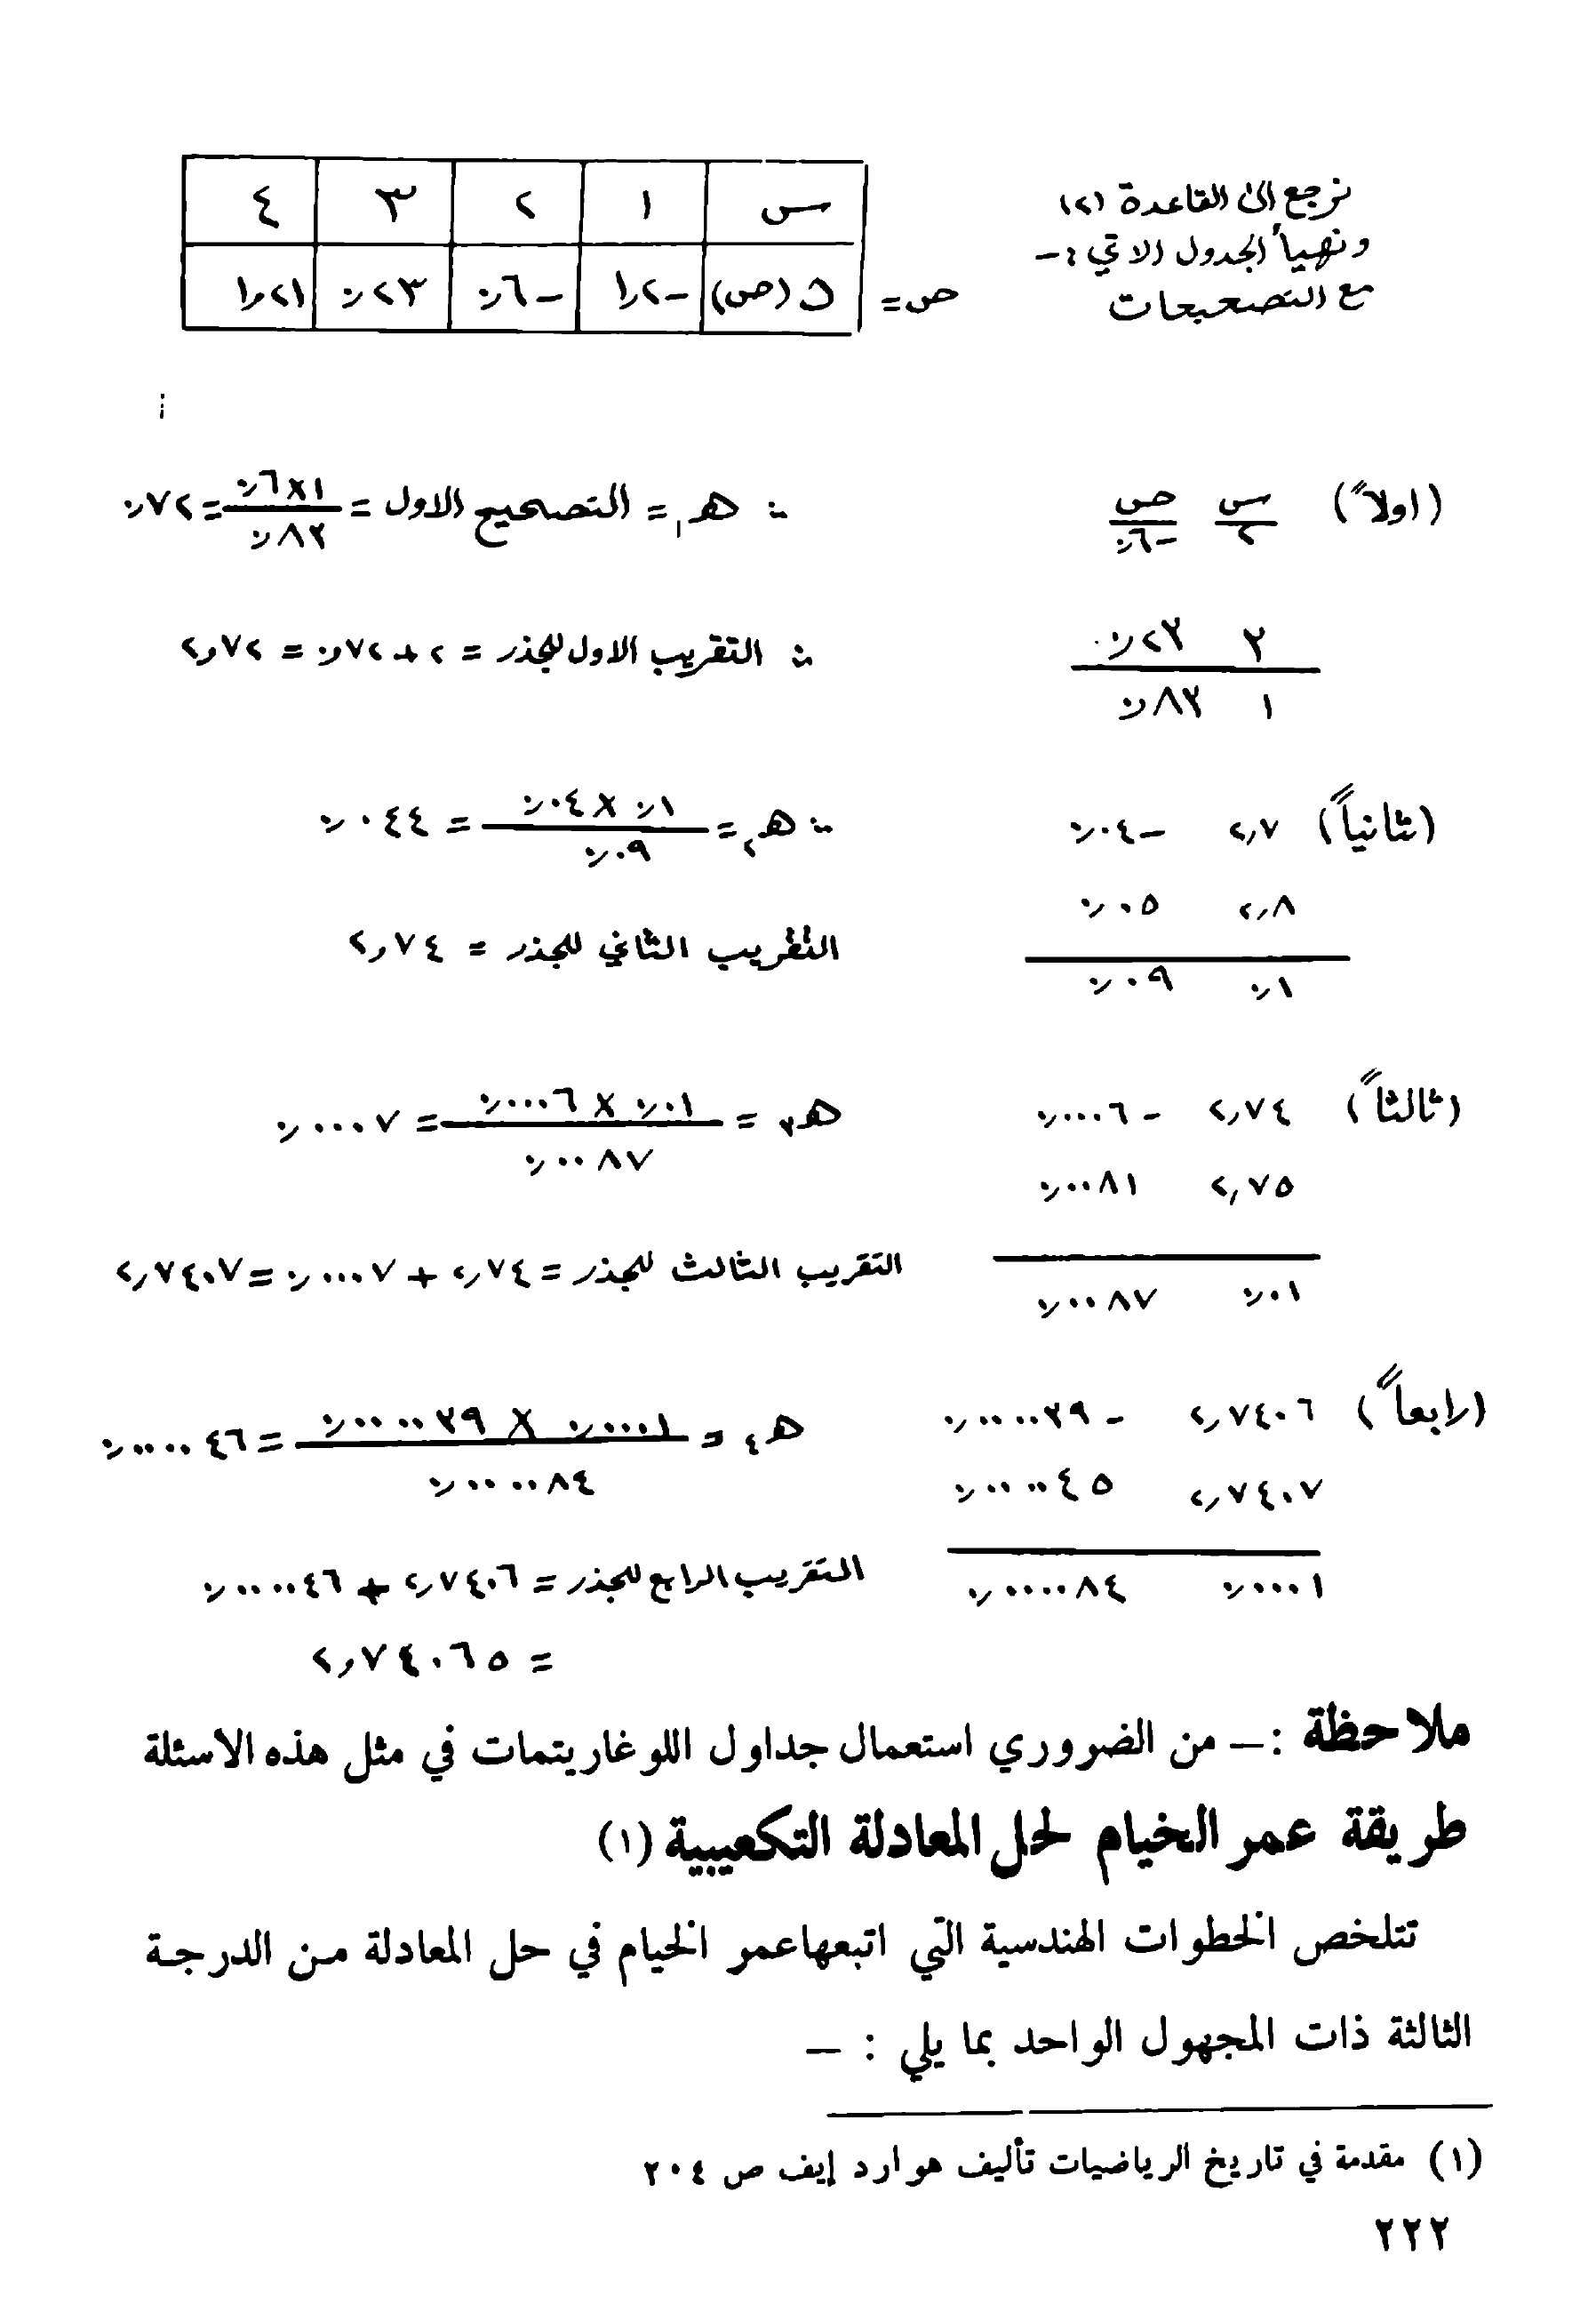 نرجع الى القاعدة (٢)
ونهيأ الجدول الاتي :-
مع التصحيحات
س ١ ٢ ٣ ٤
ص = ن (ص) -١٫٢ -٠٫٦ ٠٫٢٣ ١٫٢١
(اولاً) س ص ∴ هـ١ = التصحيح الاول = ١ × ٠٫٦ / ٠٫٨٣ = ٠٫٧٢
٢ -٠٫٦
٣ ٠٫٢٣ ∴ التقريب الاول للجذر = ٢ + ٠٫٧٢ = ٢٫٧٢
١ ٠٫٨٣
(ثانياً) ٢٫٧ -٠٫٠٤ ∴ هـ٢ = ٠٫١ × ٠٫٠٤ / ٠٫٠٩ = ٠٫٠٤٤
٢٫٨ ٠٫٠٥
التقريب الثاني للجذر = ٢٫٧٤
٠٫١ ٠٫٠٩
(ثالثاً) ٢٫٧٤ -٠٫٠٠٠٦ هـ٣ = ٠٫٠١ × ٠٫٠٠٠٦ / ٠٫٠٠٨٧ = ٠٫٠٠٠٧
٢٫٧٥ ٠٫٠٠٨١
التقريب الثالث للجذر = ٢٫٧٤ + ٠٫٠٠٠٧ = ٢٫٧٤٠٧
٠٫٠١ ٠٫٠٠٨٧
(رابعاً) ٢٫٧٤٠٦ -٠٫٠٠٠٠٣٩ هـ٤ = ٠٫٠٠٠١ × ٠٫٠٠٠٠٣٩ / ٠٫٠٠٠٠٨٤ = ٠٫٠٠٠٠٤٦
٢٫٧٤٠٧ ٠٫٠٠٠٠٤٥
٠٫٠٠٠١ ٠٫٠٠٠٠٨٤ التقريب الرابع للجذر = ٢٫٧٤٠٦ + ٠٫٠٠٠٠٤٦
= ٢٫٧٤٠٦٥
ملاحظة :– من الضروري استعمال جداول اللوغاريتمات في مثل هذه الاسئلة
طريقة عمر الخيام لحل المعادلة التكعيبية (١)
تتلخص الخطوات الهندسية التي اتبعهاعمر الخيام في حل المعادلة من الدرجة
الثالثة ذات المجهول الواحد بما يلي : –
(١) مقدمة في تاريخ الرياضيات تأليف هوارد إيف ص ٢٠٤
٢٢٢